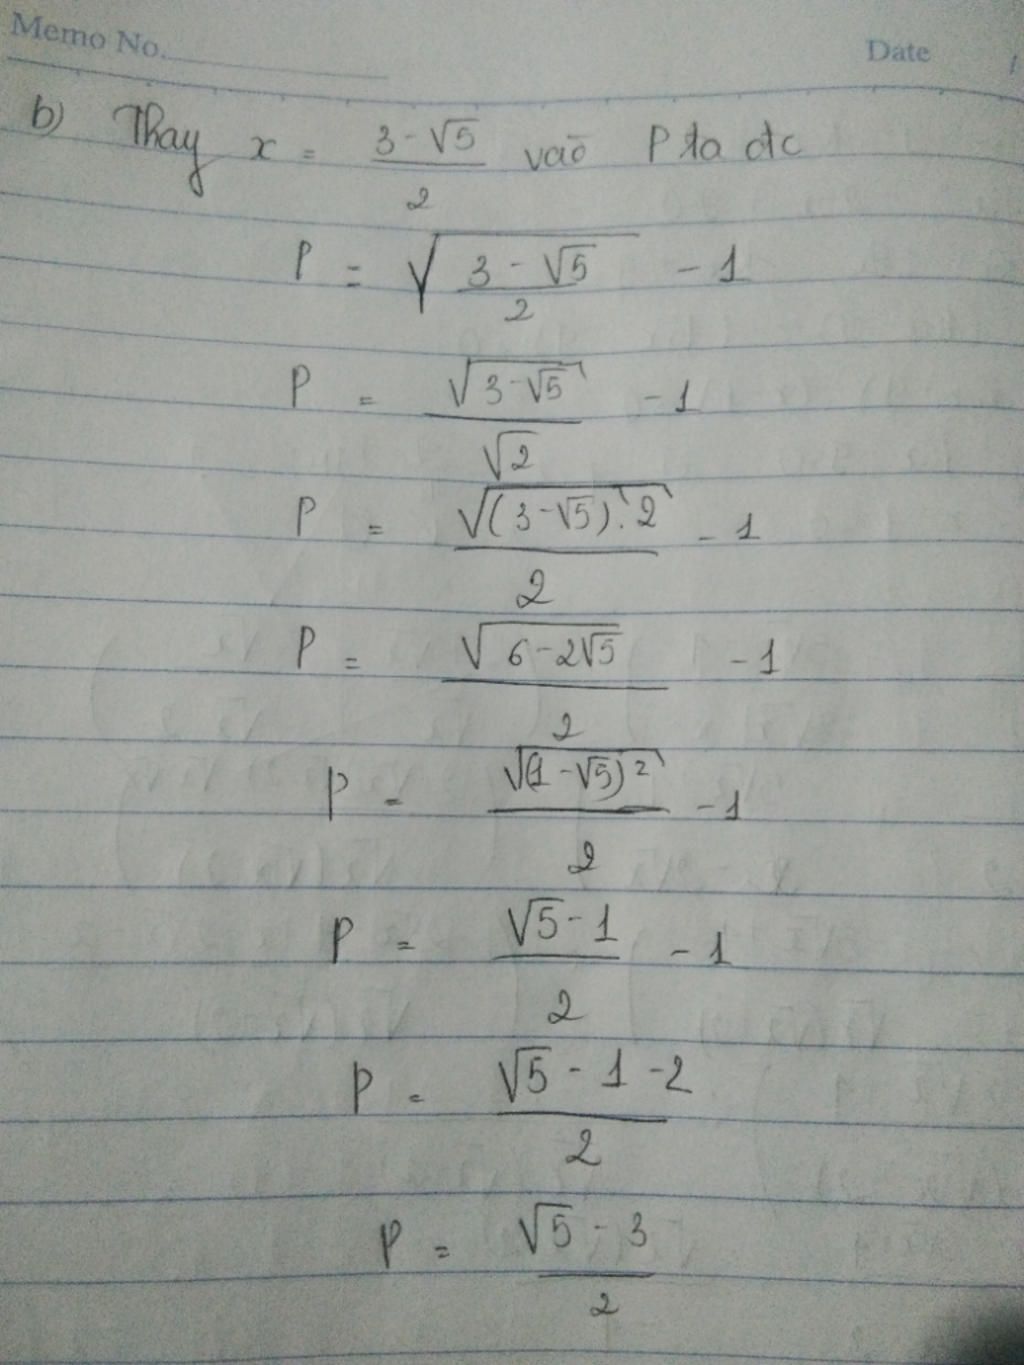 Memo No.
Date /
b) Thay x = \frac{3-\sqrt{5}}{2} vào P ta đc
P = \sqrt{\frac{3-\sqrt{5}}{2}} - 1
P = \frac{\sqrt{3-\sqrt{5}}}{\sqrt{2}} - 1
P = \frac{\sqrt{(3-\sqrt{5}).2}}{2} - 1
P = \frac{\sqrt{6-2\sqrt{5}}}{2} - 1
P = \frac{\sqrt{(1-\sqrt{5})^2}}{2} - 1
P = \frac{\sqrt{5}-1}{2} - 1
P = \frac{\sqrt{5}-1-2}{2}
P = \frac{\sqrt{5}-3}{2}